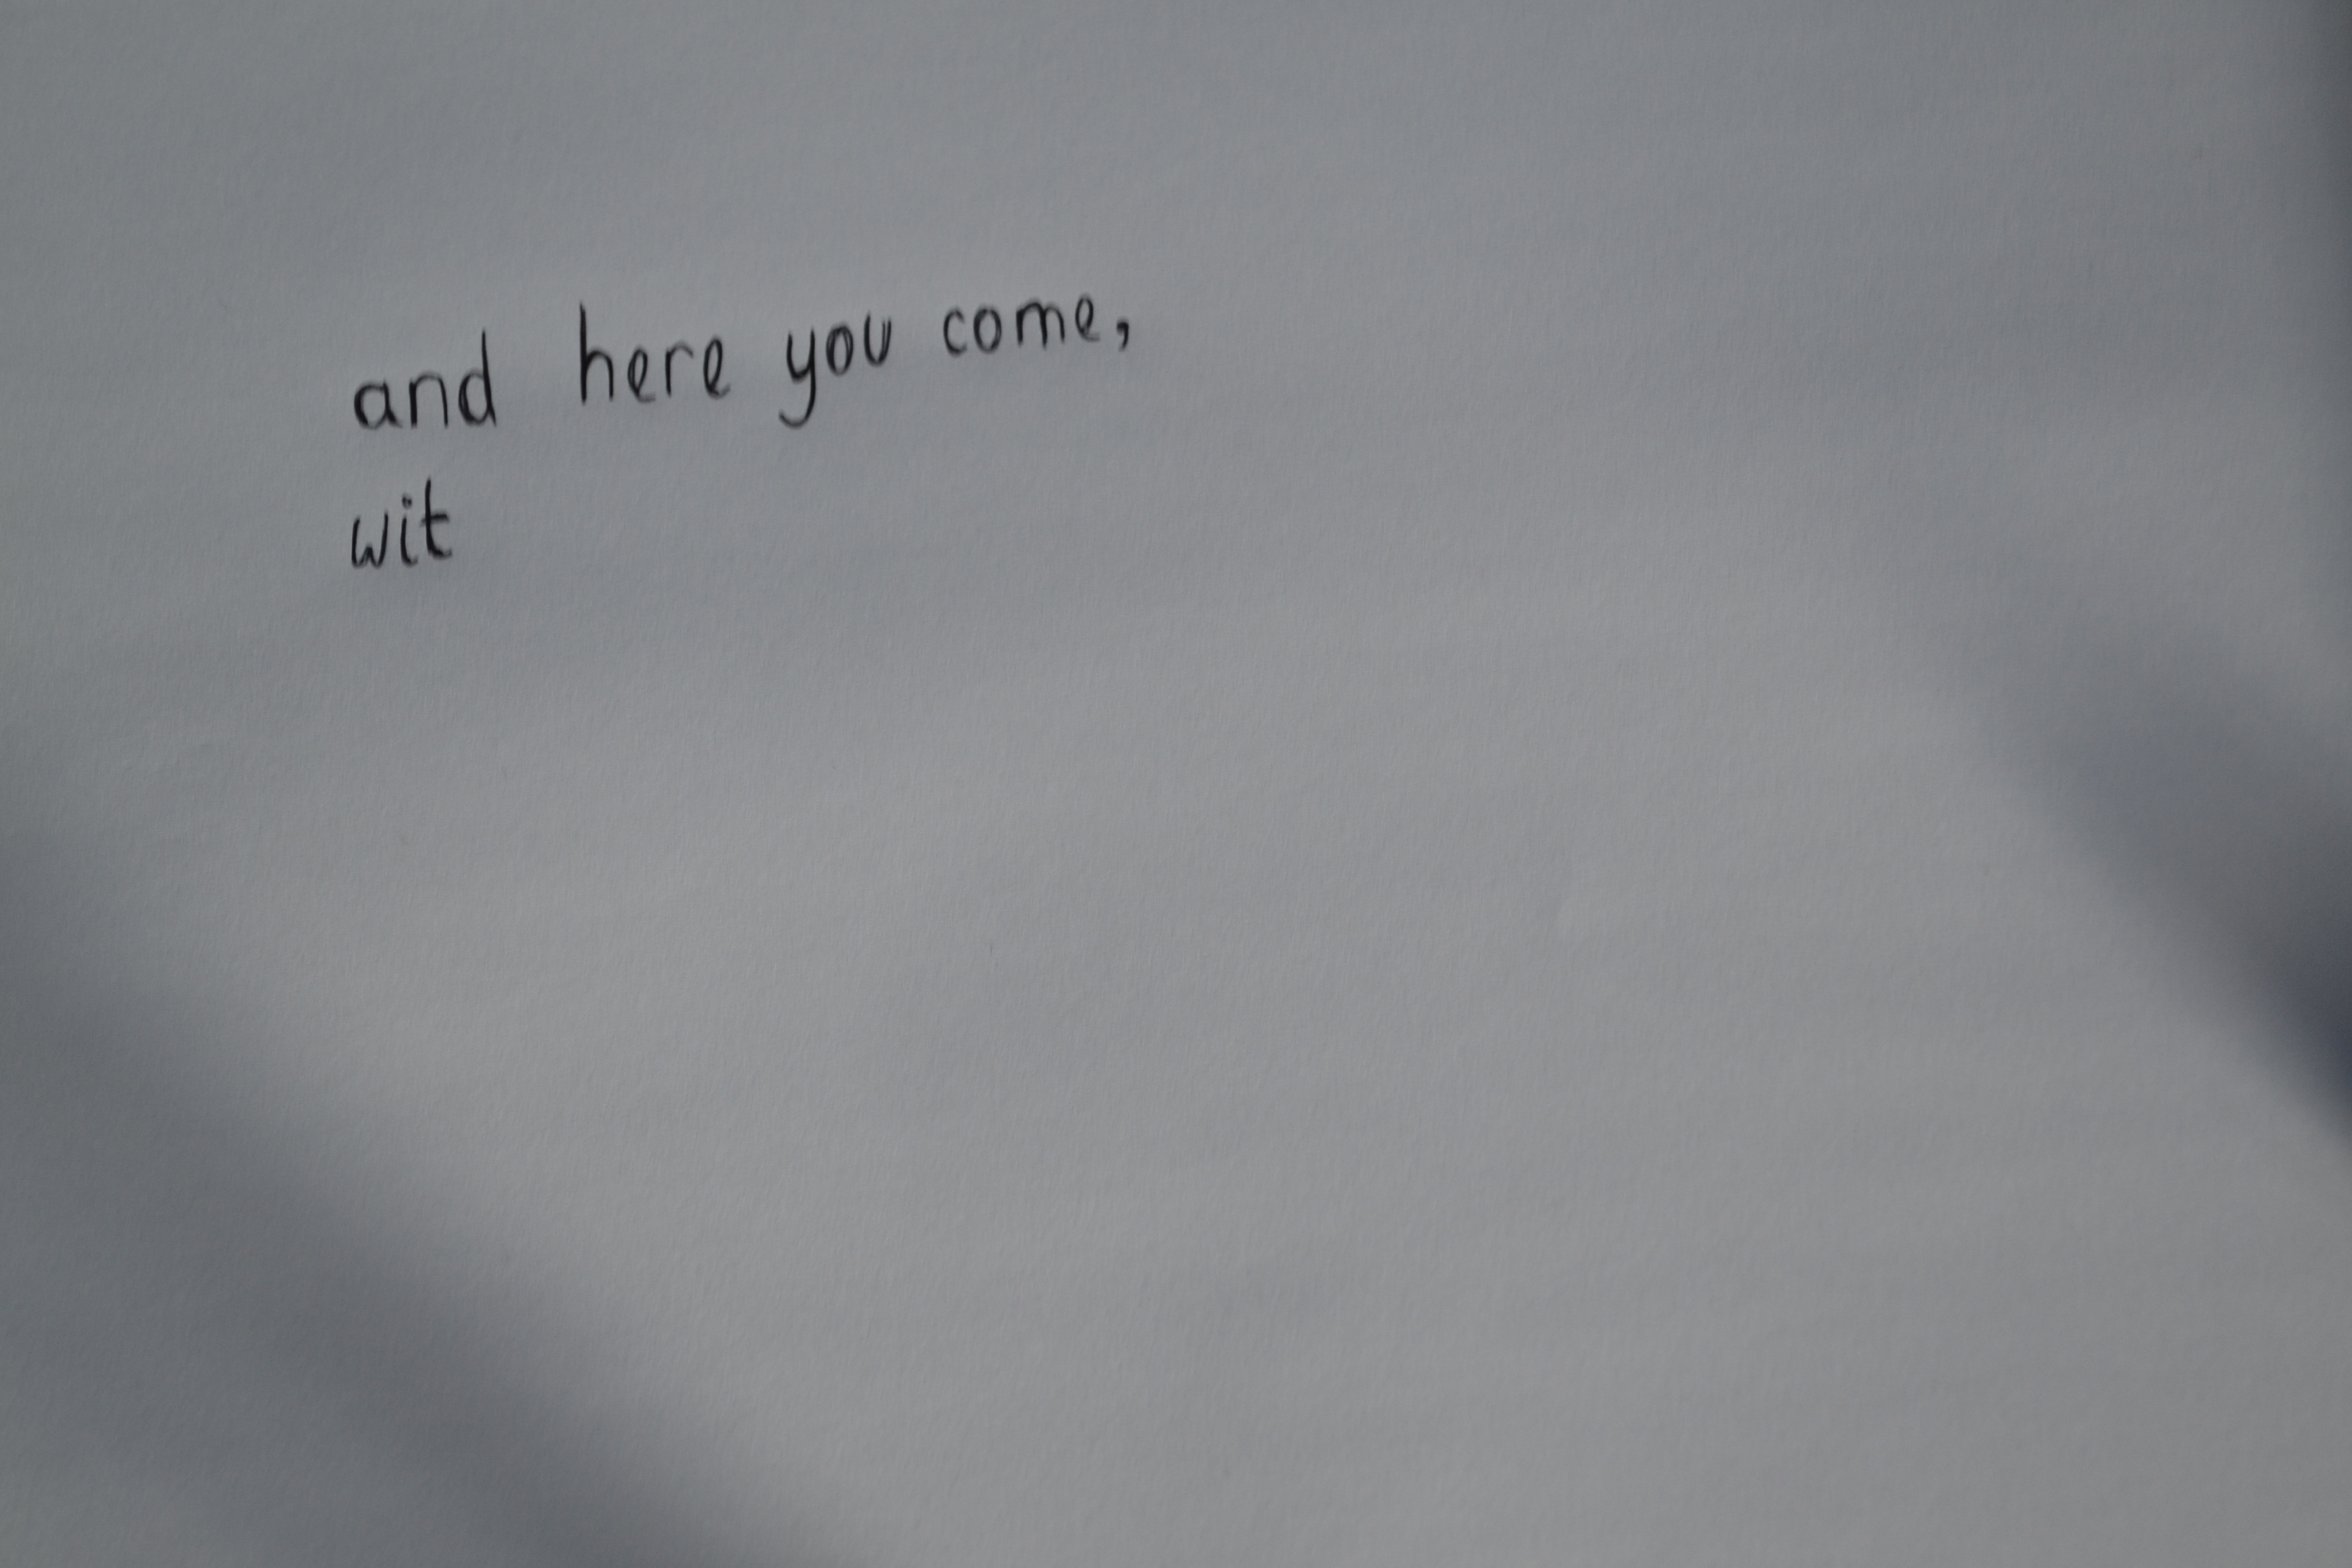 and here you come,
wit